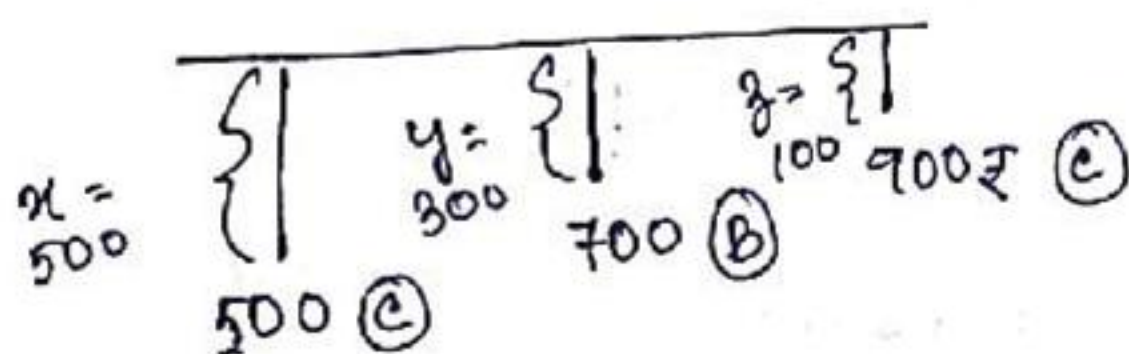 x = 500
y = 300
z = 100
500 (C)
700 (B)
900₹ (C)